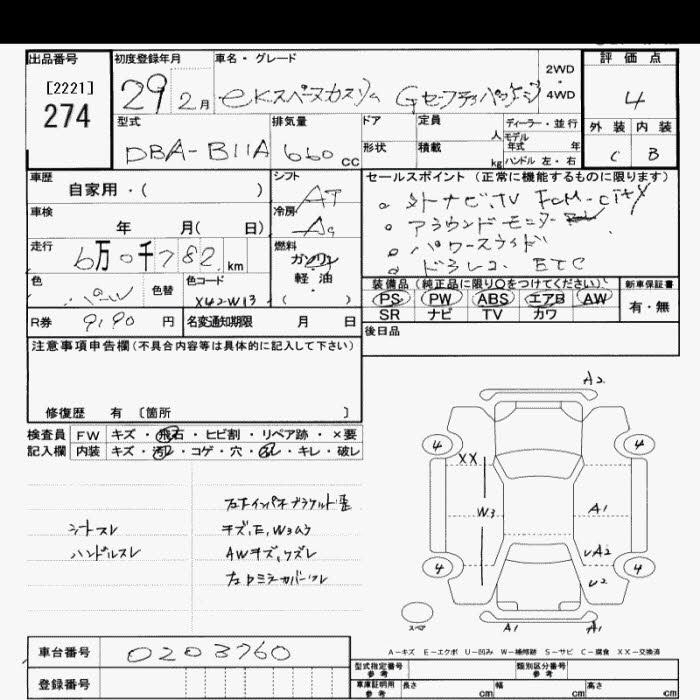 出品番号 初度登録年月 車名・グレード 2WD・4WD 評価点
[2221]
274
29 2月 eKスペースカスタム Gセーフティパッケージ 4
型式 排気量 ドア 定員 人 ディーラー・並行 外装 内装
DBA-B11A 660cc 形状 積載 kg モデル年式 年式 ハンドル 左・右 C B
車歴 自家用・( ) シフト AT
セールスポイント (正常に機能するものに限ります)
。外ナビ、TV
。アラウンドモニター
。パワースライド
。ドラレコ ETC
車検 年 月( 日) 冷房 AC
走行 6万0千782km 燃料 ガソリン 軽油・( )
色 色替 色コード X42-W13
装備品 (純正品に限り○をつけてください) 新車保証書
PS PW ABS エアB AW 有・無
SR ナビ TV カワ
R券 9,190円 名変通知期限 月 日
後日品
注意事項申告欄(不具合内容等は具体的に記入して下さい)
修復歴 有 [箇所 ]
検査員 FW キズ・飛石・ヒビ割・リペア跡・×要
記入欄 内装 キズ・汚レ・コゲ・穴・スレ・キレ・破レ
シートスレ
ハンドルスレ
キズ,E,W3ムラ
AWキズ,クスレ
左Dミラーカバーワレ
A2
4 4
XX
W3 A1
A2
4 4
U2
スペア A1 A1
A-キズ E-エクボ U-凹み W-補修跡 S-サビ C-腐食 XX-交換済
車台番号 0203760
型式指定番号 参考 類別区分番号 参考
登録番号
車庫証明用 参考 長さ cm 幅 cm 高さ cm